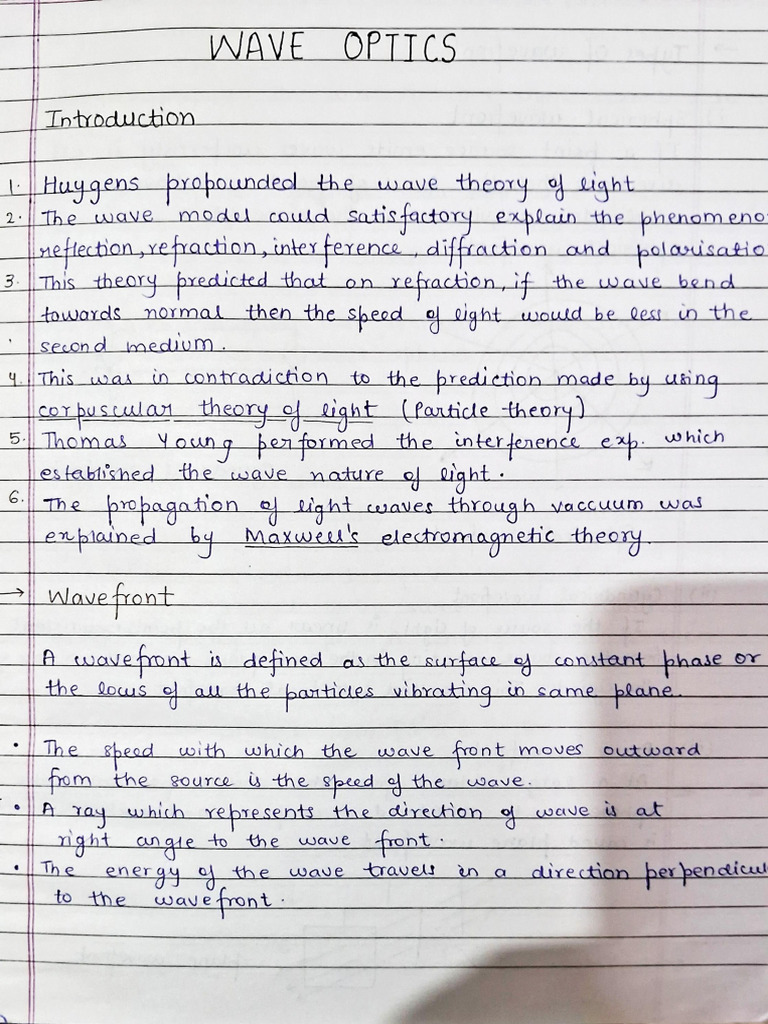 WAVE OPTICS
Introduction
1. Huygens propounded the wave theory of light
2. The wave model could satisfactory explain the phenomeno
reflection, refraction, interference, diffraction and polarisatio
3. This theory predicted that on refraction, if the wave bend
towards normal then the speed of light would be less in the
second medium.
4. This was in contradiction to the prediction made by using
corpuscular theory of light (Particle theory)
5. Thomas Young performed the interference exp. which
established the wave nature of light.
6. The propagation of light waves through vaccuum was
explained by Maxwell's electromagnetic theory.
→ Wavefront
A wavefront is defined as the surface of constant phase or
the locus of all the particles vibrating in same plane.
• The speed with which the wave front moves outward
from the source is the speed of the wave.
• A ray which represents the direction of wave is at
right angle to the wave front.
• The energy of the wave travels in a direction perpendicul
to the wavefront.